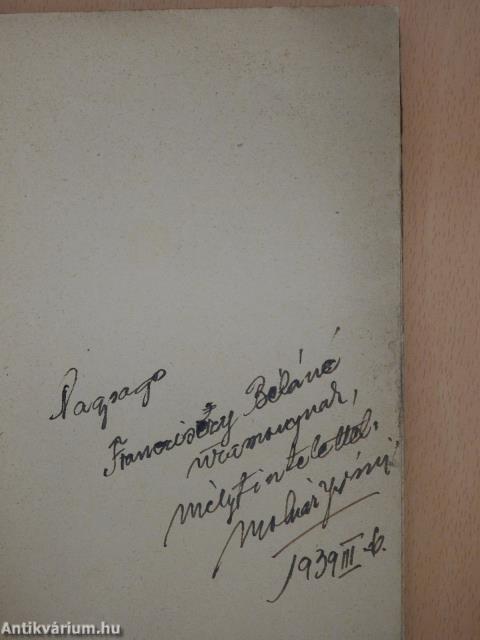 Nagysago
Francisczy Béláné
úramognak,
mély tisztelettel.
Molnár
1939 III. 6.
Antikvárium.hu